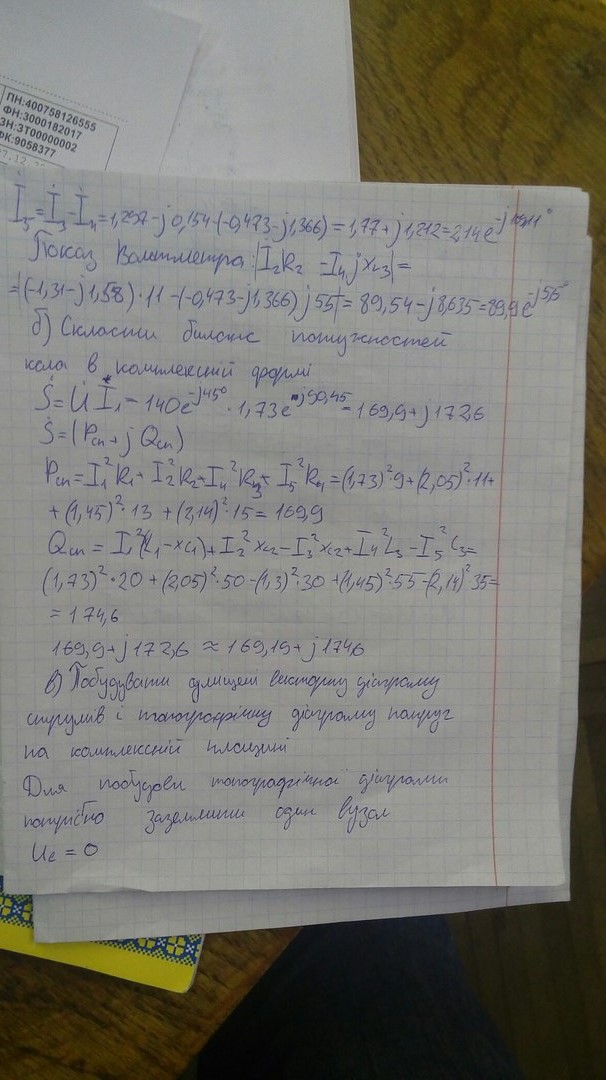 ПН:400758126555
ФН:3000182017
ЗН:ЗТ00000002
ФК:9058377
İ₅=İ₃-İ₄=1,297-j0,154-(-0,473-j1,366)=1,77+j1,212=2,14e^-j
Показ Вольтметра: |I₂R₂ - I₄jX_L3|=
=|(-1,31-j1,58)·11-(-0,473-j1,366)j55|=89,54-j8,635=89,9e^-j5,5°
б) Скласти баланс потужностей
кола в комплексній формі
Ṡ=U̇İ₁*=140e^-j45°·1,73e^j90,45=169,9+j172,6
Ṡ=(Pсп+jQсп)
Pсп=I₁²R₁+I₂²R₂+I₄²R₃+I₅²R₄=(1,73)²·9+(2,05)²·11+
+(1,45)²·13+(2,14)²·15=169,9
Qсп=I₁²(L₁-xc₁)+I₂²x_L2-I₃²xc₂+I₄²L₃-I₅²C₃=
(1,73)²·20+(2,05)²·50-(1,3)²·30+(1,45)²·55-(2,14)²·35=
=174,6
169,9+j172,6≈169,19+j174,6
в) Побудувати суміщені векторну діаграму
струмів і топографічну діаграму напруг
на комплексній площині
Для побудови топографічної діаграми
потрібно заземлити один вузол
Uе=0